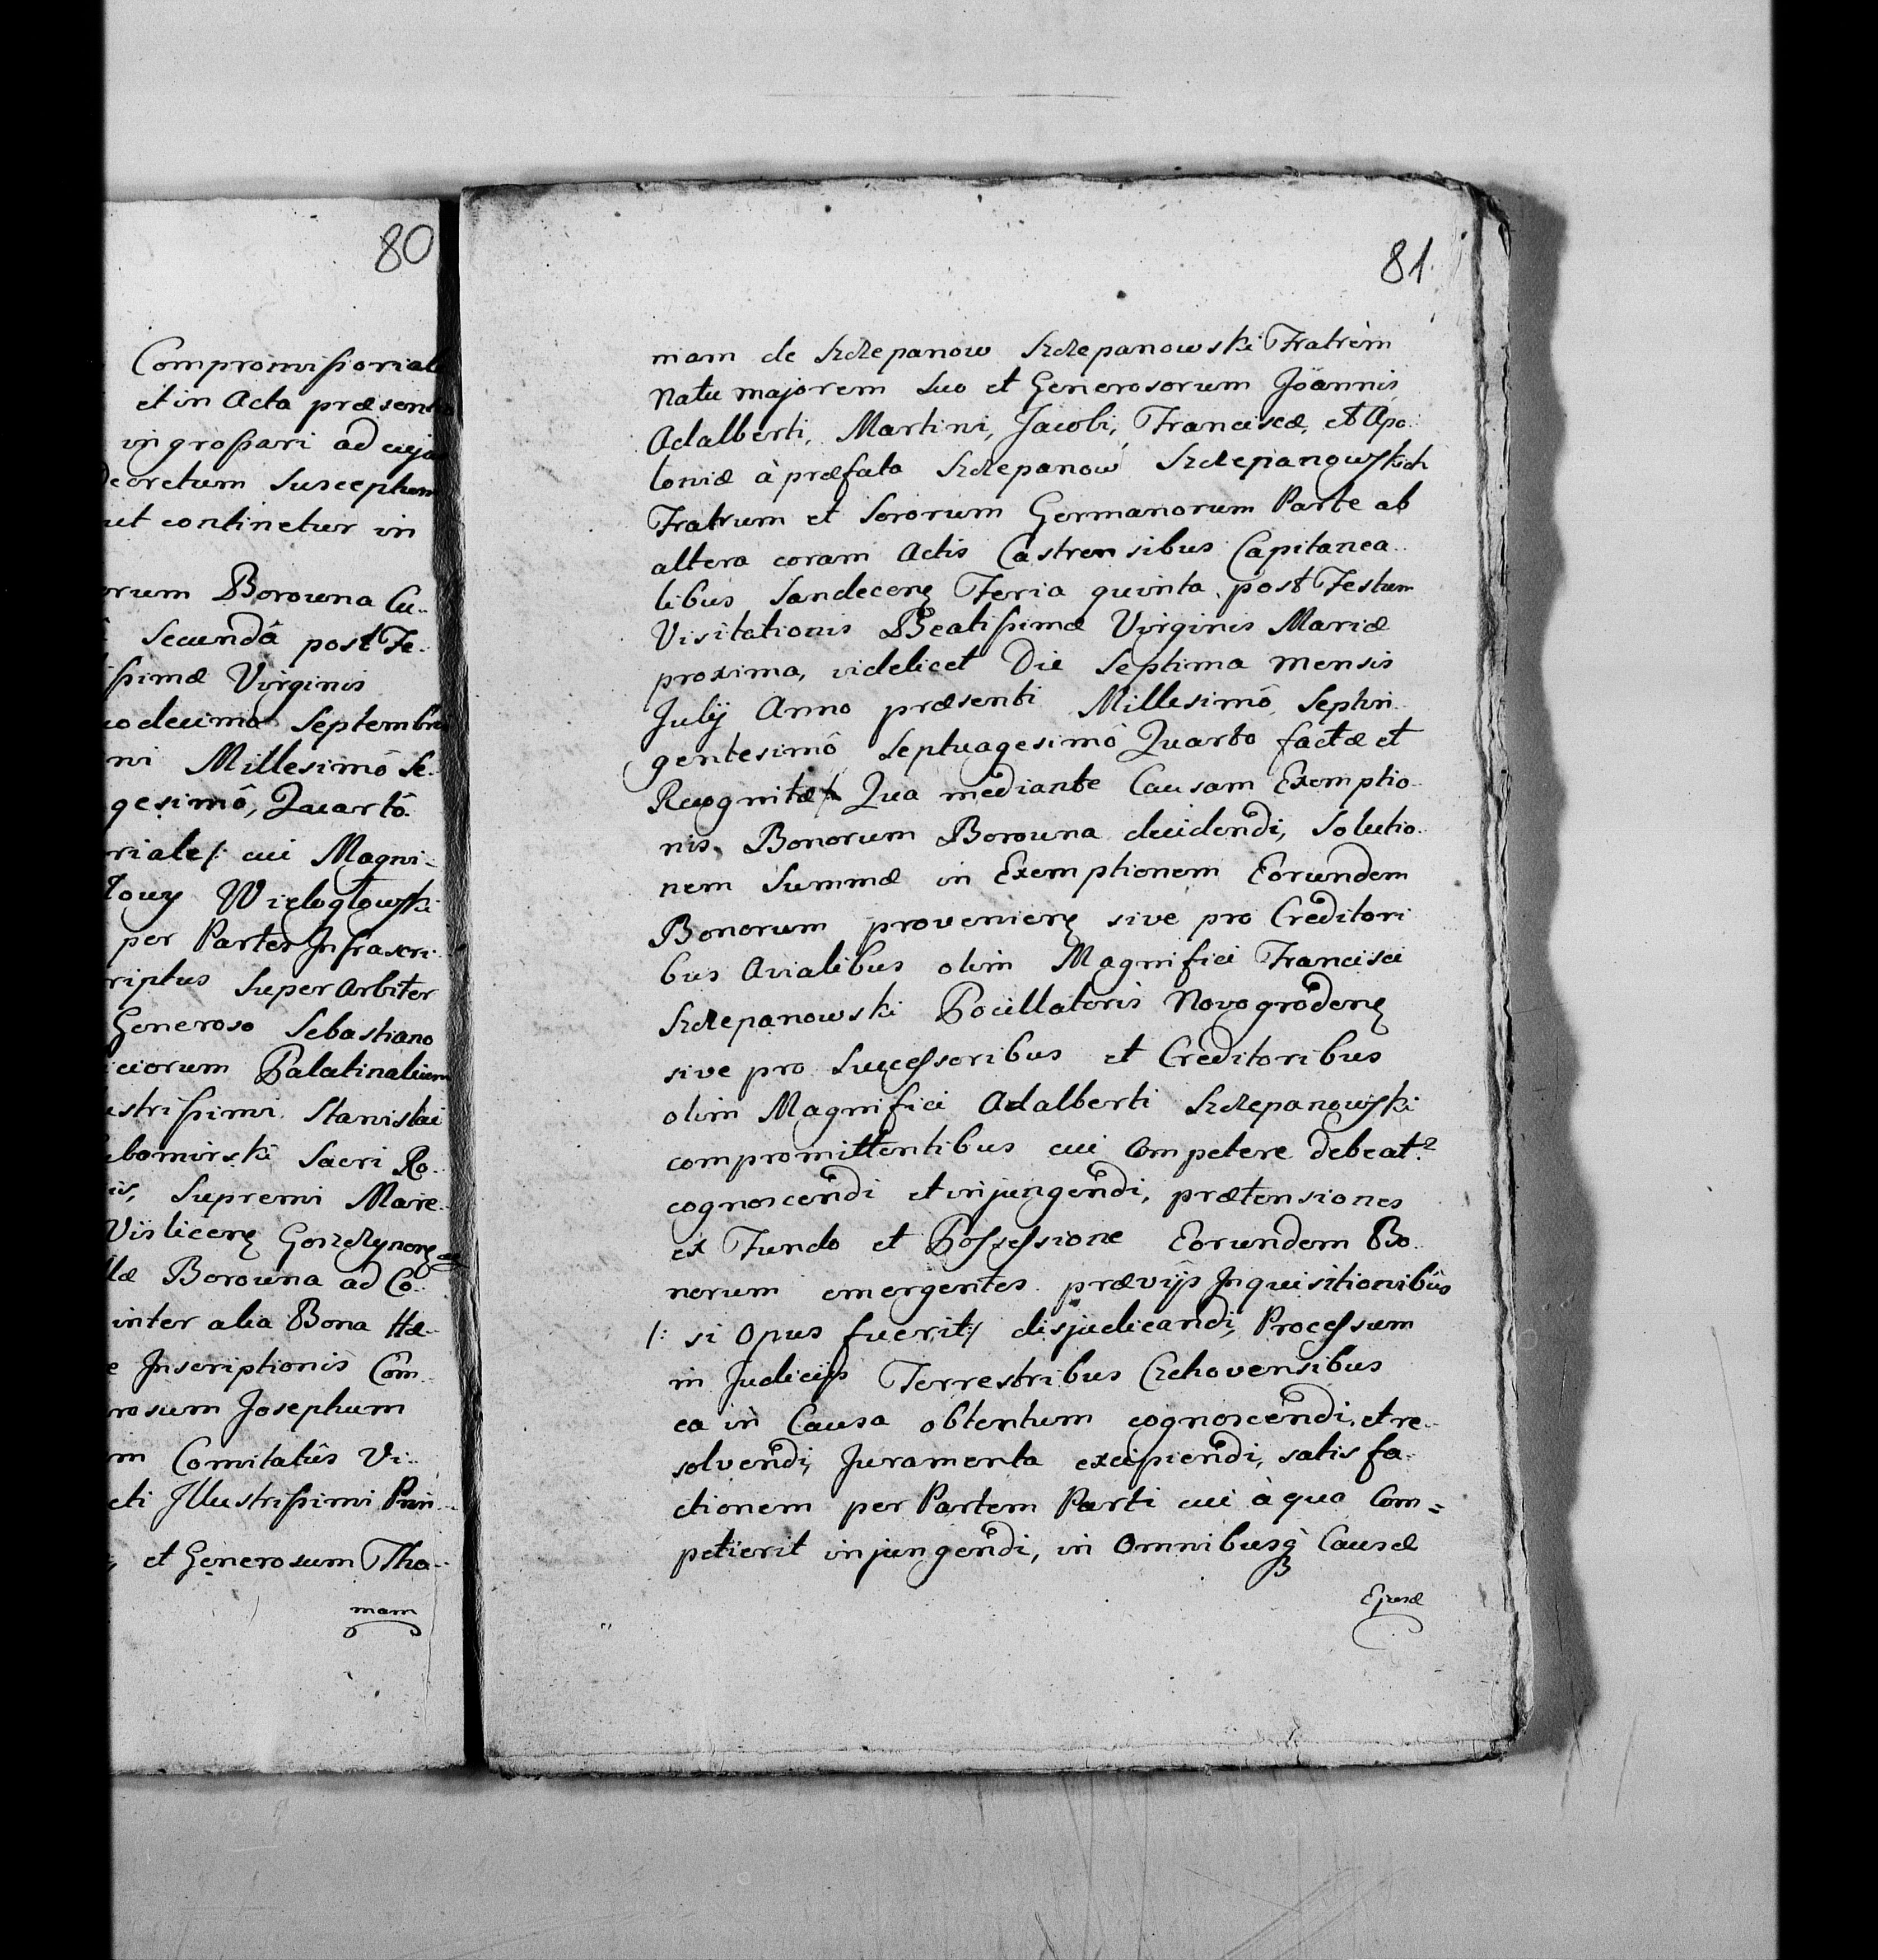 80
Compromissoriale
et in Acta præsentia
ingrossari ad cujus
Decretum Susceptum
ut continetur in
orum Borowna Cu..
Secundâ post Fe..
ssimæ Virginis
uodecima Septembris
ni Millesimô Se..
gesimô, Quartô.
riale/: cui Magni..
Wielogłowski
per Partes Infrascri..
riptus SuperArbiter
Generoso Sebastiano
iciorum Palatinalium
ustrissimi Stanislai
ubomirski Sacri Ro..
is, Supremi Mare..
Vislicens Goszczynens ac
læ Borowna ad Co..
inter alia Bona Hæ..
e Inscriptionis Com..
rosum Josephum
m Comitatûs Vi..
cti Illustrissimi Prin..
et Generosum Tho..
mam
81.
mam de Szczepanow Szczepanowski Fratrem
Natu majorem Suo et Generosorum Joannis,
Adalberti, Martini, Jacobi, Franciscæ, et Apo..
loniæ à præfata Szczepanow Szczepanowskich
Fratrum et Sororum Germanorum Parte ab
altera coram Actis Castrensibus Capitanea..
libus Sandecens Feria quinta post Festum
Visitationis Beatissimæ Virginis Mariæ
proxima, videlicet Die Septima mensis
Julij Anno præsenti Millesimô Septin..
gentesimô Septuagesimô Quarto factæ et
Recognitæ/ Qua mediante Causam Exemptio..
nis Bonorum Borowna decidendi, Solutio..
nem Summæ in Exemptionem Eorundem
Bonorum proveniens sive pro Creditori
bus Avialibus olim Magnifici Francisci
Szczepanowski Pocillatoris Novogrodens
sive pro Successoribus et Creditoribus
olim Magnifici Adalberti Szczepanowski
compromittentibus cui Competere debeat?
cognoscendi et injungendi, prætensiones
ex Fundo et Possessione Eorundem Bo..
norum emergentes prævijs Inquisitionibus
/: si Opus fuerit:/ disjudicandi, Processum
in Judicijs Terrestribus Czchovensibus
ea in Causa obtentum cognoscendi, et re..
solvendi, Juramenta excipiendi, satisfa..
ctionem per Partem Parti cui à qua Com=
petierit injungendi, in Omnibusq Causæ
Ejusd